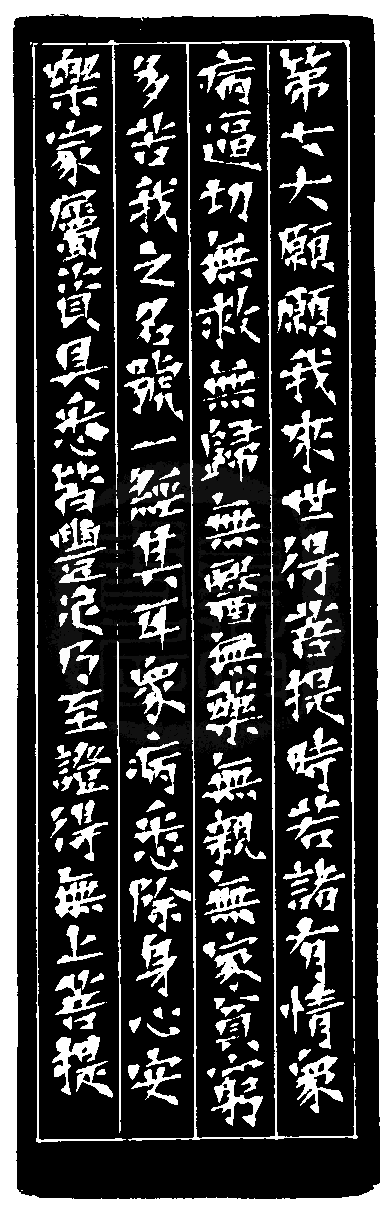 第七大願願我來世得菩提時若諸有情眾
病逼切無救無歸無醫無藥無親無家貧窮
多苦我之名號一經其耳眾病悉除身心安
樂家屬資具悉皆豐足乃至證得無上菩提